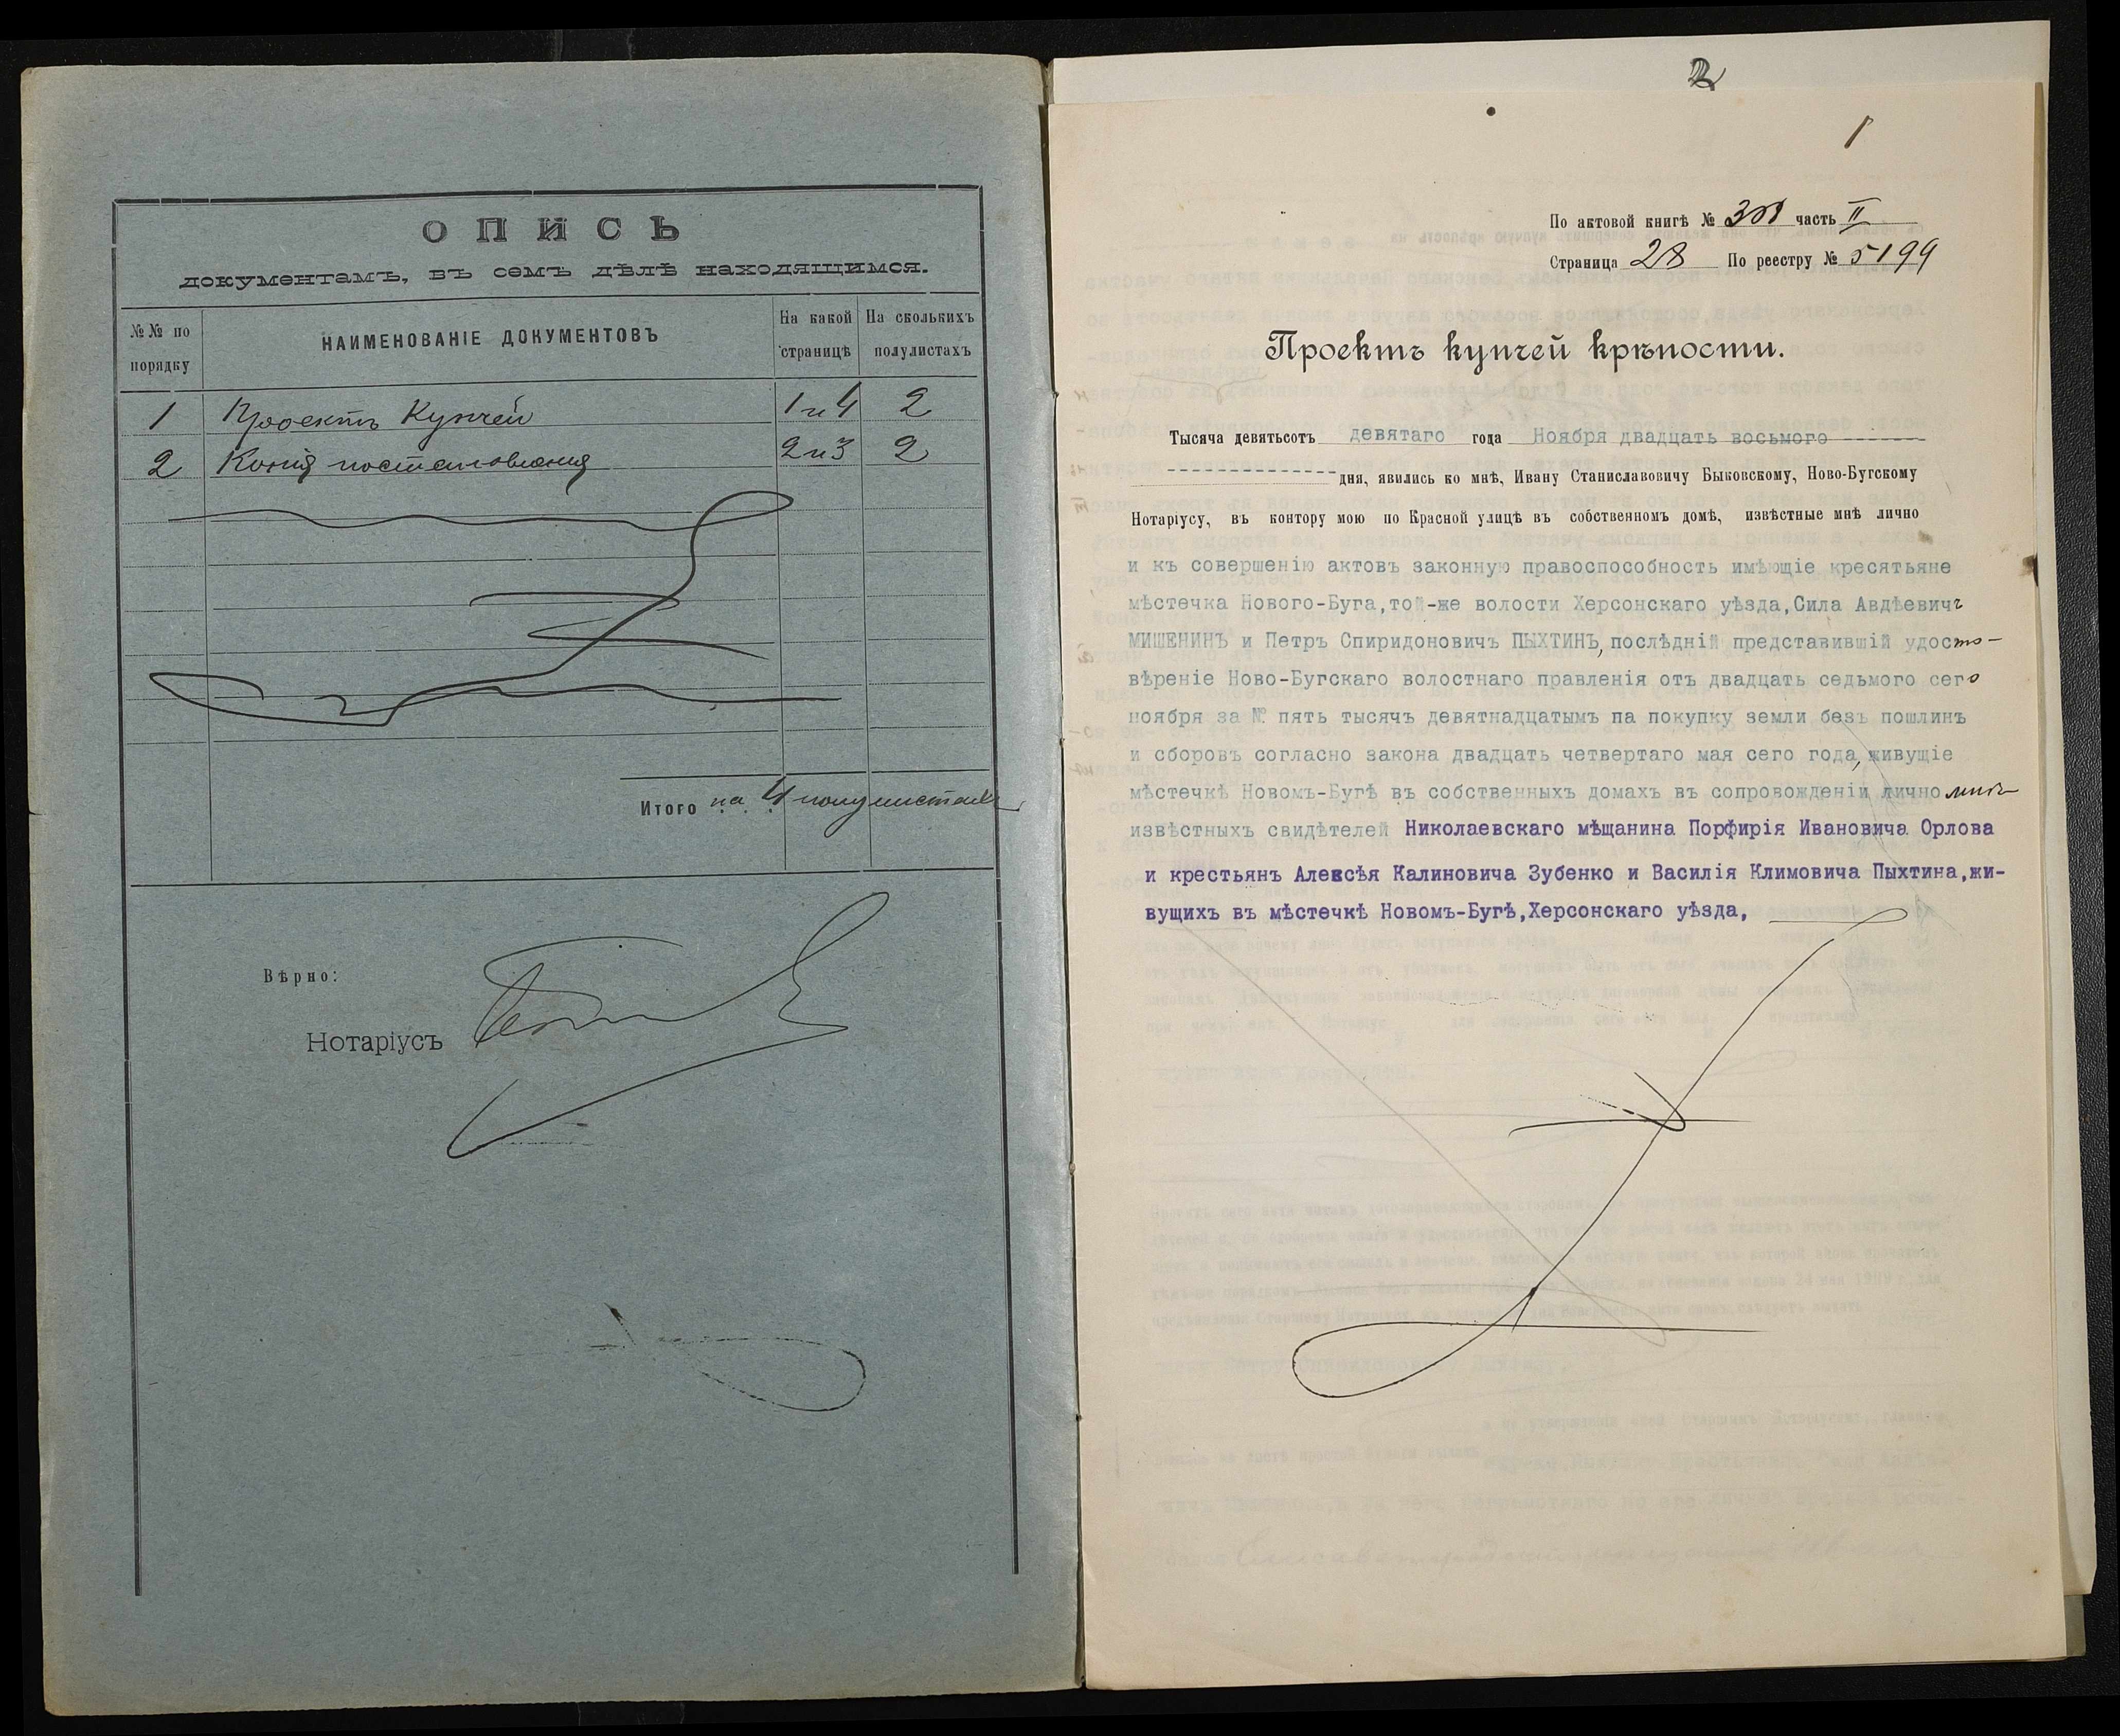 ОПИСЬ
документамъ, въ семъ дѣлѣ находящимся.
№№ по порядку
НАИМЕНОВАНІЕ ДОКУМЕНТОВЪ
На какой страницѣ
На сколькихъ полулистахъ
1 Проектъ Купчей 1 и 4 2
2 Копія постановленія 2 и 3 2
Итого на 4 полулистахъ
Вѣрно:
Нотаріусъ
2
1
По актовой книгѣ № часть II
Страница 28 По реестру № 5199
Проектъ купчей крѣпости.
Тысяча девятьсотъ девятаго года Ноября двадцать восьмого
дня, явились ко мнѣ, Ивану Станиславовичу Быковскому, Ново-Бугскому
Нотаріусу, въ контору мою по Красной улицѣ въ собственномъ домѣ, извѣстные мнѣ лично
и къ совершенію актовъ законную правоспособность имѣющіе кресятьяне
мѣстечка Нового-Буга,той-же волости Херсонскаго уѣзда,Сила Авдѣевичъ
МИШЕНИНЪ и Петръ Спиридоновичъ ПЫХТИНЪ, послѣдній представившій удосто-
вѣреніе Ново-Бугскаго волостнаго правленія отъ двадцать седьмого сего
ноября за № пять тысячъ девятнадцатымъ па покупку земли безъ пошлинъ
и сборовъ согласно закона двадцать четвертаго мая сего года, живущіе
мѣстечкѣ Новомъ-Бугѣ въ собственныхъ домахъ въ сопровожденіи лично мнѣ
извѣстныхъ свидѣтелей Николаевскаго мѣщанина Порфирія Ивановича Орлова
и крестьянъ Алексѣя Калиновича Зубенко и Василія Климовича Пыхтина,жи-
вущихъ въ мѣстечкѣ Новомъ-Бугѣ,Херсонскаго уѣзда,